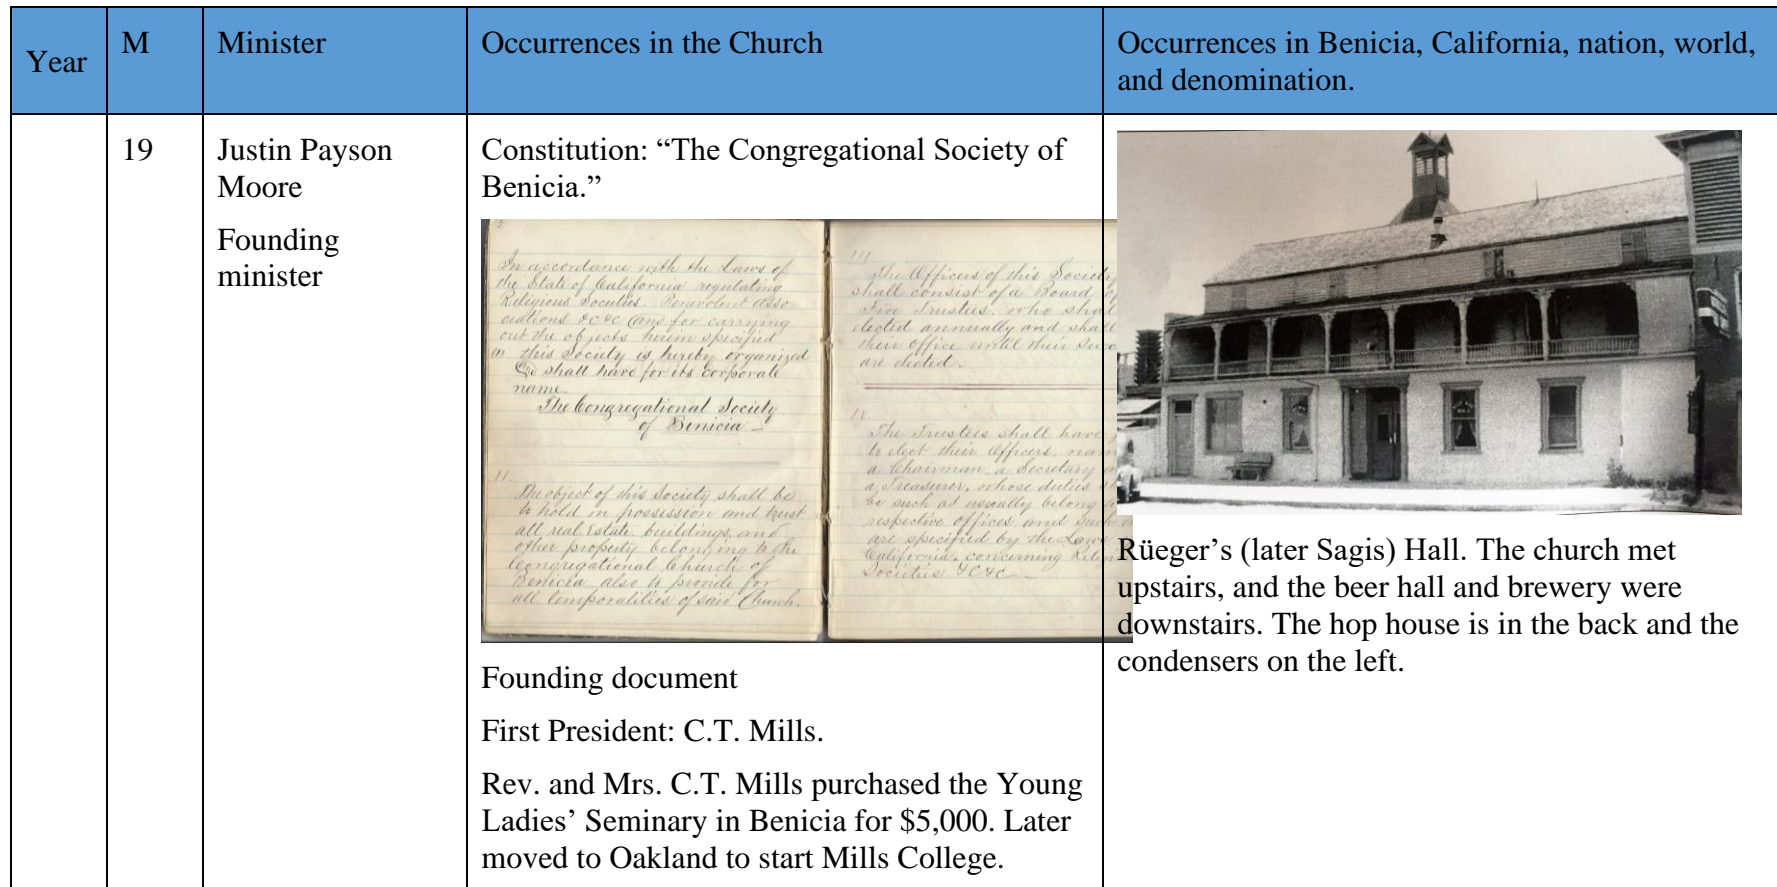 Year
M
Minister
Occurrences in the Church
Occurrences in Benicia, California, nation, world,
and denomination.
19
Justin Payson
Moore
Founding
minister
Constitution: “The Congregational Society of
Benicia.”
In accordance with the Laws of
the State of California regulating
Religious Societies. Benevolent Asso
ciations &c &c and for carrying
out the objects herein specified
this Society is hereby organized
shall have for its corporate
name
The Congregational Society
of Benicia
II
The object of this Society shall be
to hold in possession and trust
all real Estate, buildings, and
other property belonging to the
Congregational Church of
Benicia also to provide for
all temporalities of said Church.
III
The Officers of this Society
shall consist of a Board of
Five Trustees, who shall
elected annually and shall
their office until their
are elected.
IV
The Trustees shall have
to elect their Officers,
a Chairman, a Secretary
a Treasurer, whose duties
be such as usually belong
respective offices, and such
are specified by the Laws
California, concerning
Societies &c &c
Founding document
First President: C.T. Mills.
Rev. and Mrs. C.T. Mills purchased the Young
Ladies’ Seminary in Benicia for $5,000. Later
moved to Oakland to start Mills College.
Rüeger’s (later Sagis) Hall. The church met
upstairs, and the beer hall and brewery were
downstairs. The hop house is in the back and the
condensers on the left.